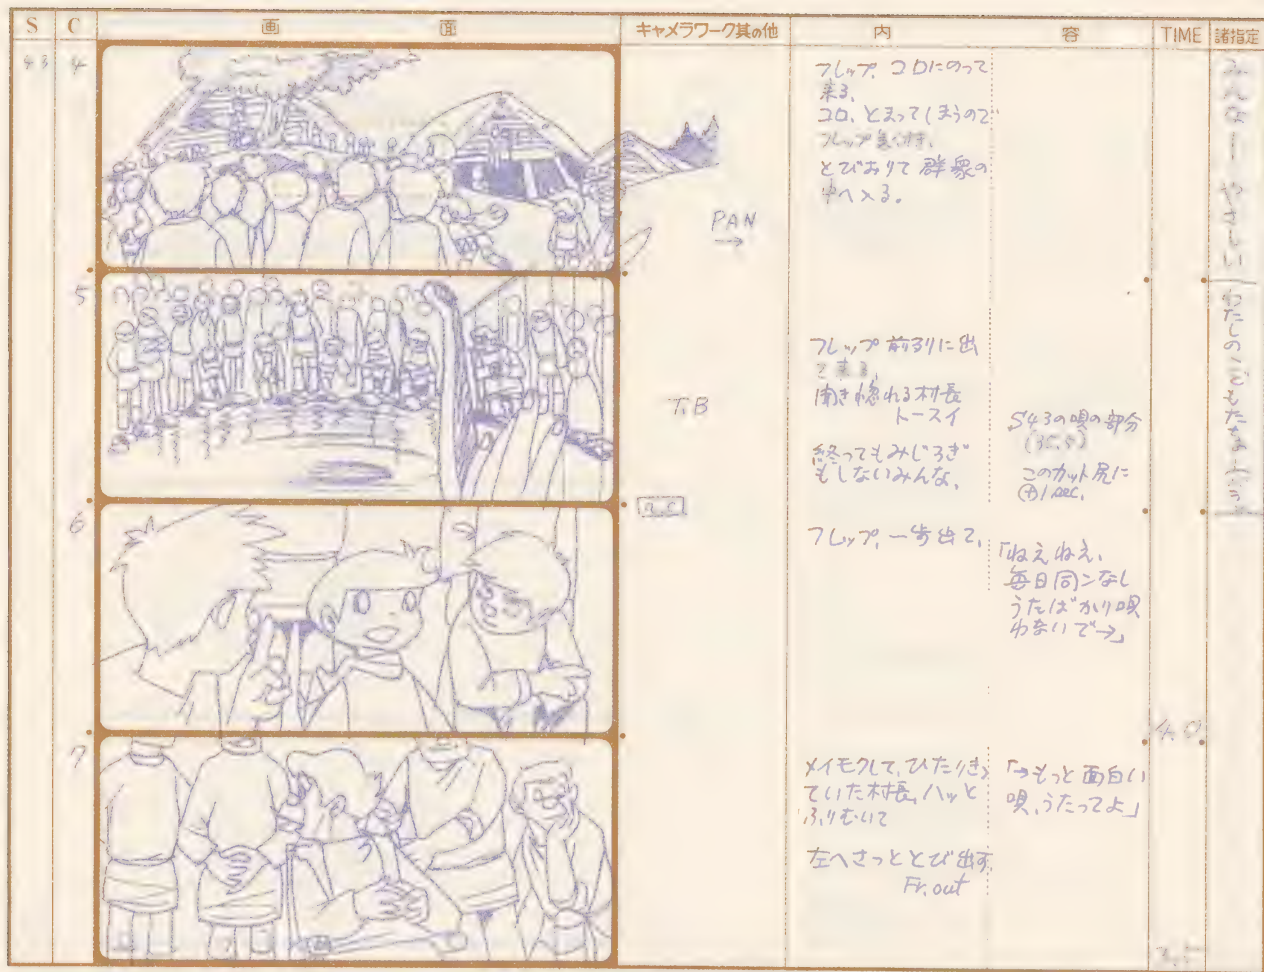 S
C
画 面
キャメラワーク其の他
内 容
TIME
諸指定
43
4
PAN
→
フレップ、コロにのって
来る、
コロ、とまってしまうので
とびおりて 群衆の
中へ入る。
みんなー やさしい
5
T.B
フレップ 前列に出
て来る、
聞き惚れる村長
トースイ
終ってもみじろぎ
もしないみんな、
S43の唄の部分
このカット尻に
⊕1 sec.
わたしのこどもたちよ
6
フレップ、一歩出て、
「ねえねえ、
毎日同ンなし
うたばかり唄
わないで→」
4.0
7
メイモクして、ひたりきっ
ていた村長、ハッと
ふりむいて
左へさっととび出す
Fr. out
「→もっと面白い
唄、うたってよ」